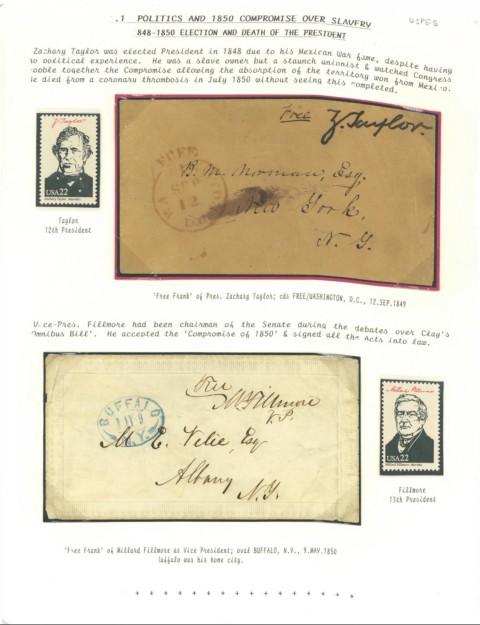 .1 POLITICS AND 1850 COMPROMISE OVER SLAVERY
USPES
848-1850 ELECTION AND DEATH OF THE PRESIDENT
Zachary Taylor was elected President in 1848 due to his Mexican War fame, despite having
no political experience. He was a slave owner but a staunch unionist & watched Congress
cobble together the Compromise allowing the absorption of the territory won from Mexico.
He died from a coronary thrombosis in July 1850 without seeing this completed.
Z Taylor
USA 22
Zachary Taylor
Taylor
12th President
Free Z. Taylor.
FREE
SEP
12
B. M. Norman, Esq.
New York,
N. Y.
'Free Frank' of Pres. Zachary Taylor; cds FREE/WASHINGTON, D.C., 12.SEP.1849
Vice-Pres. Fillmore had been chairman of the Senate during the debates over Clay's
Omnibus Bill'. He accepted the 'Compromise of 1850' & signed all the Acts into law.
Free
M Fillmore
V.P.
BUFFALO
N.Y.
M. E. Velie, Esq
Albany
N.Y.
Millard Fillmore
USA 22
Millard Fillmore
Fillmore
13th President
'Free Frank' of Millard Fillmore as Vice President; oval BUFFALO, N.Y., 9.MAY.1850
Buffalo was his home city.
+ + + + + + + + + + + + + + + +